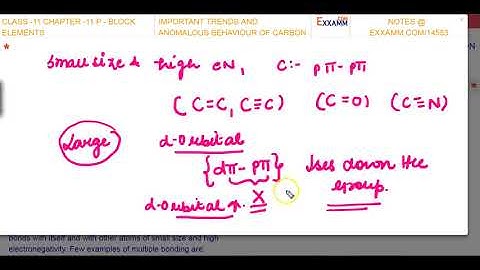 CLASS -11 CHAPTER -11 P - BLOCK ELEMENTS
IMPORTANT TRENDS AND ANOMALOUS BEHAVIOUR OF CARBON
EXXAMM .COM
NOTES @ EXXAMM.COM/14553
*
Small size & high EN, C:- pπ-pπ
(C=C, C≡C) (C=O) (C≡N)
Large d-orbital
{dπ-pπ} ↓ses down the group.
d-orbital X
bonds with itself and with other atoms of small size and high
electronegativity. Few examples of multiple bonding are: